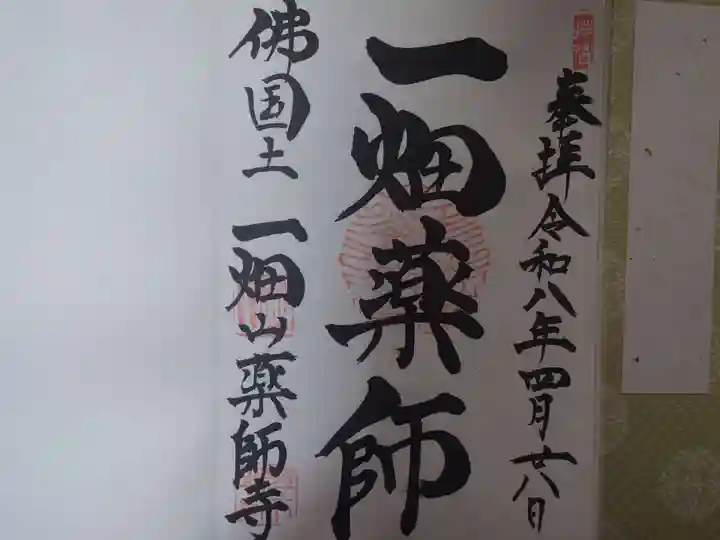 奉拝令和八年四月廿八日
一畑薬師
佛国土 一畑山薬師寺